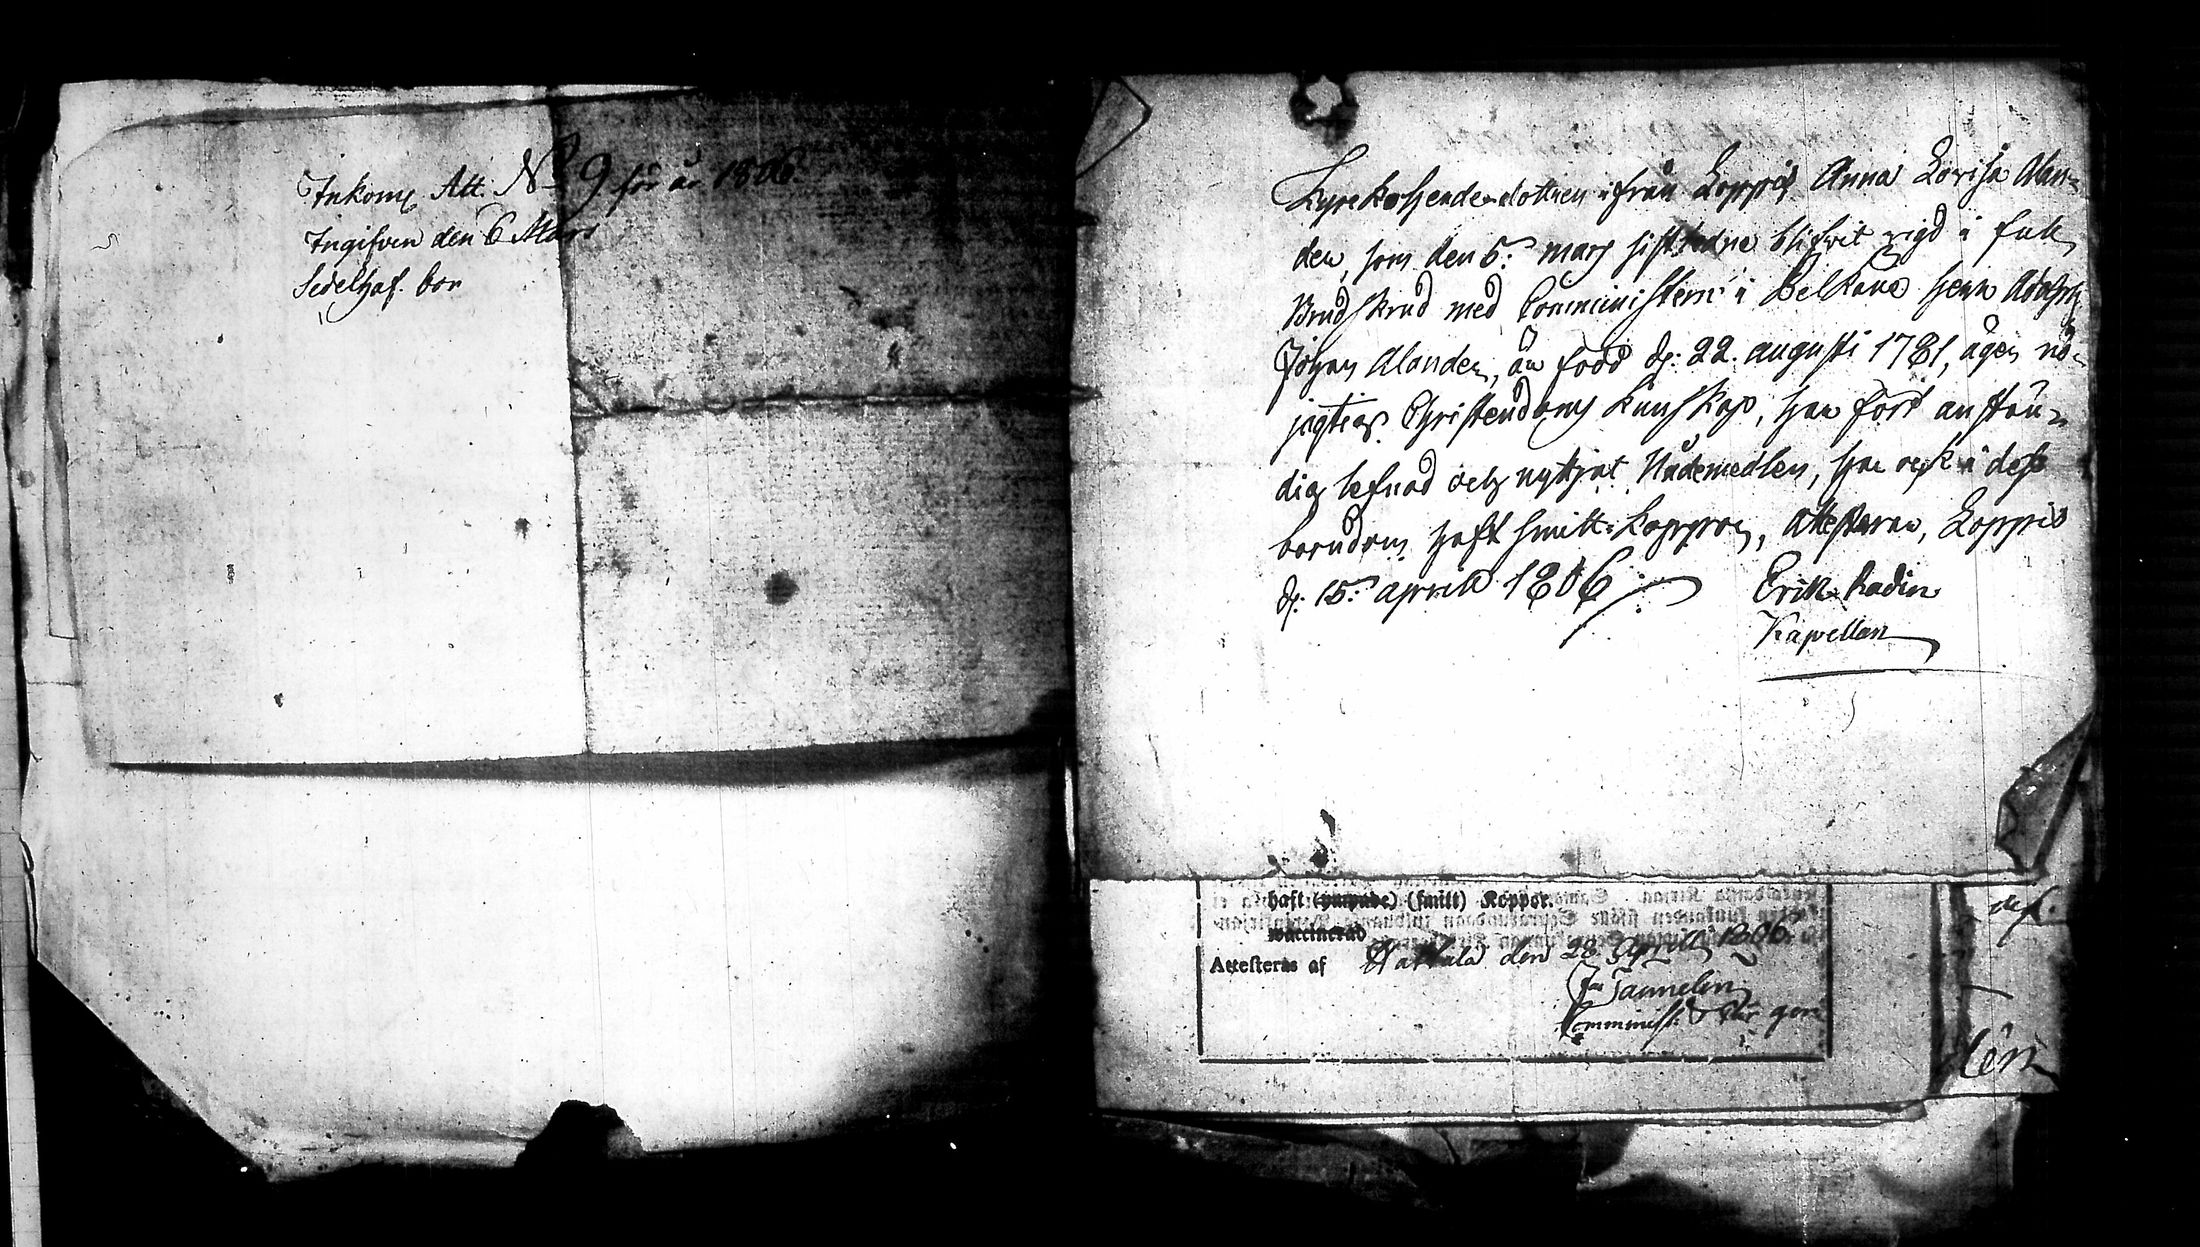 Inkomg Att. No 9 för år 1806.
Ingifven den 6 Mars
Sedelhaf. bor
Kyrckoherde-dottren ifrån Loppis Anna Lovisa Alan-
der, som den 5: mars sistledne blifvit vigd i full
Brudskrud med Comministern i Pelkäne herr Adolph
Johan Alander, är född d: 22. augusti 1781, äger nö-
jagtig Christendoms Kunskap, har fört anstän-
dig lefnad och nyttjat Nådemedlen, har ock i dess
barndom haft smitt-koppor, attesterar, Loppis
d: 15: aprill 1806
Erik Radin
Kapellan
haft (ympade) (smitt) Koppor.
vaccinerad
Attesteras af Hattula den 28 Aprill 1806.
Jan Tannelin
Comminist:
des.